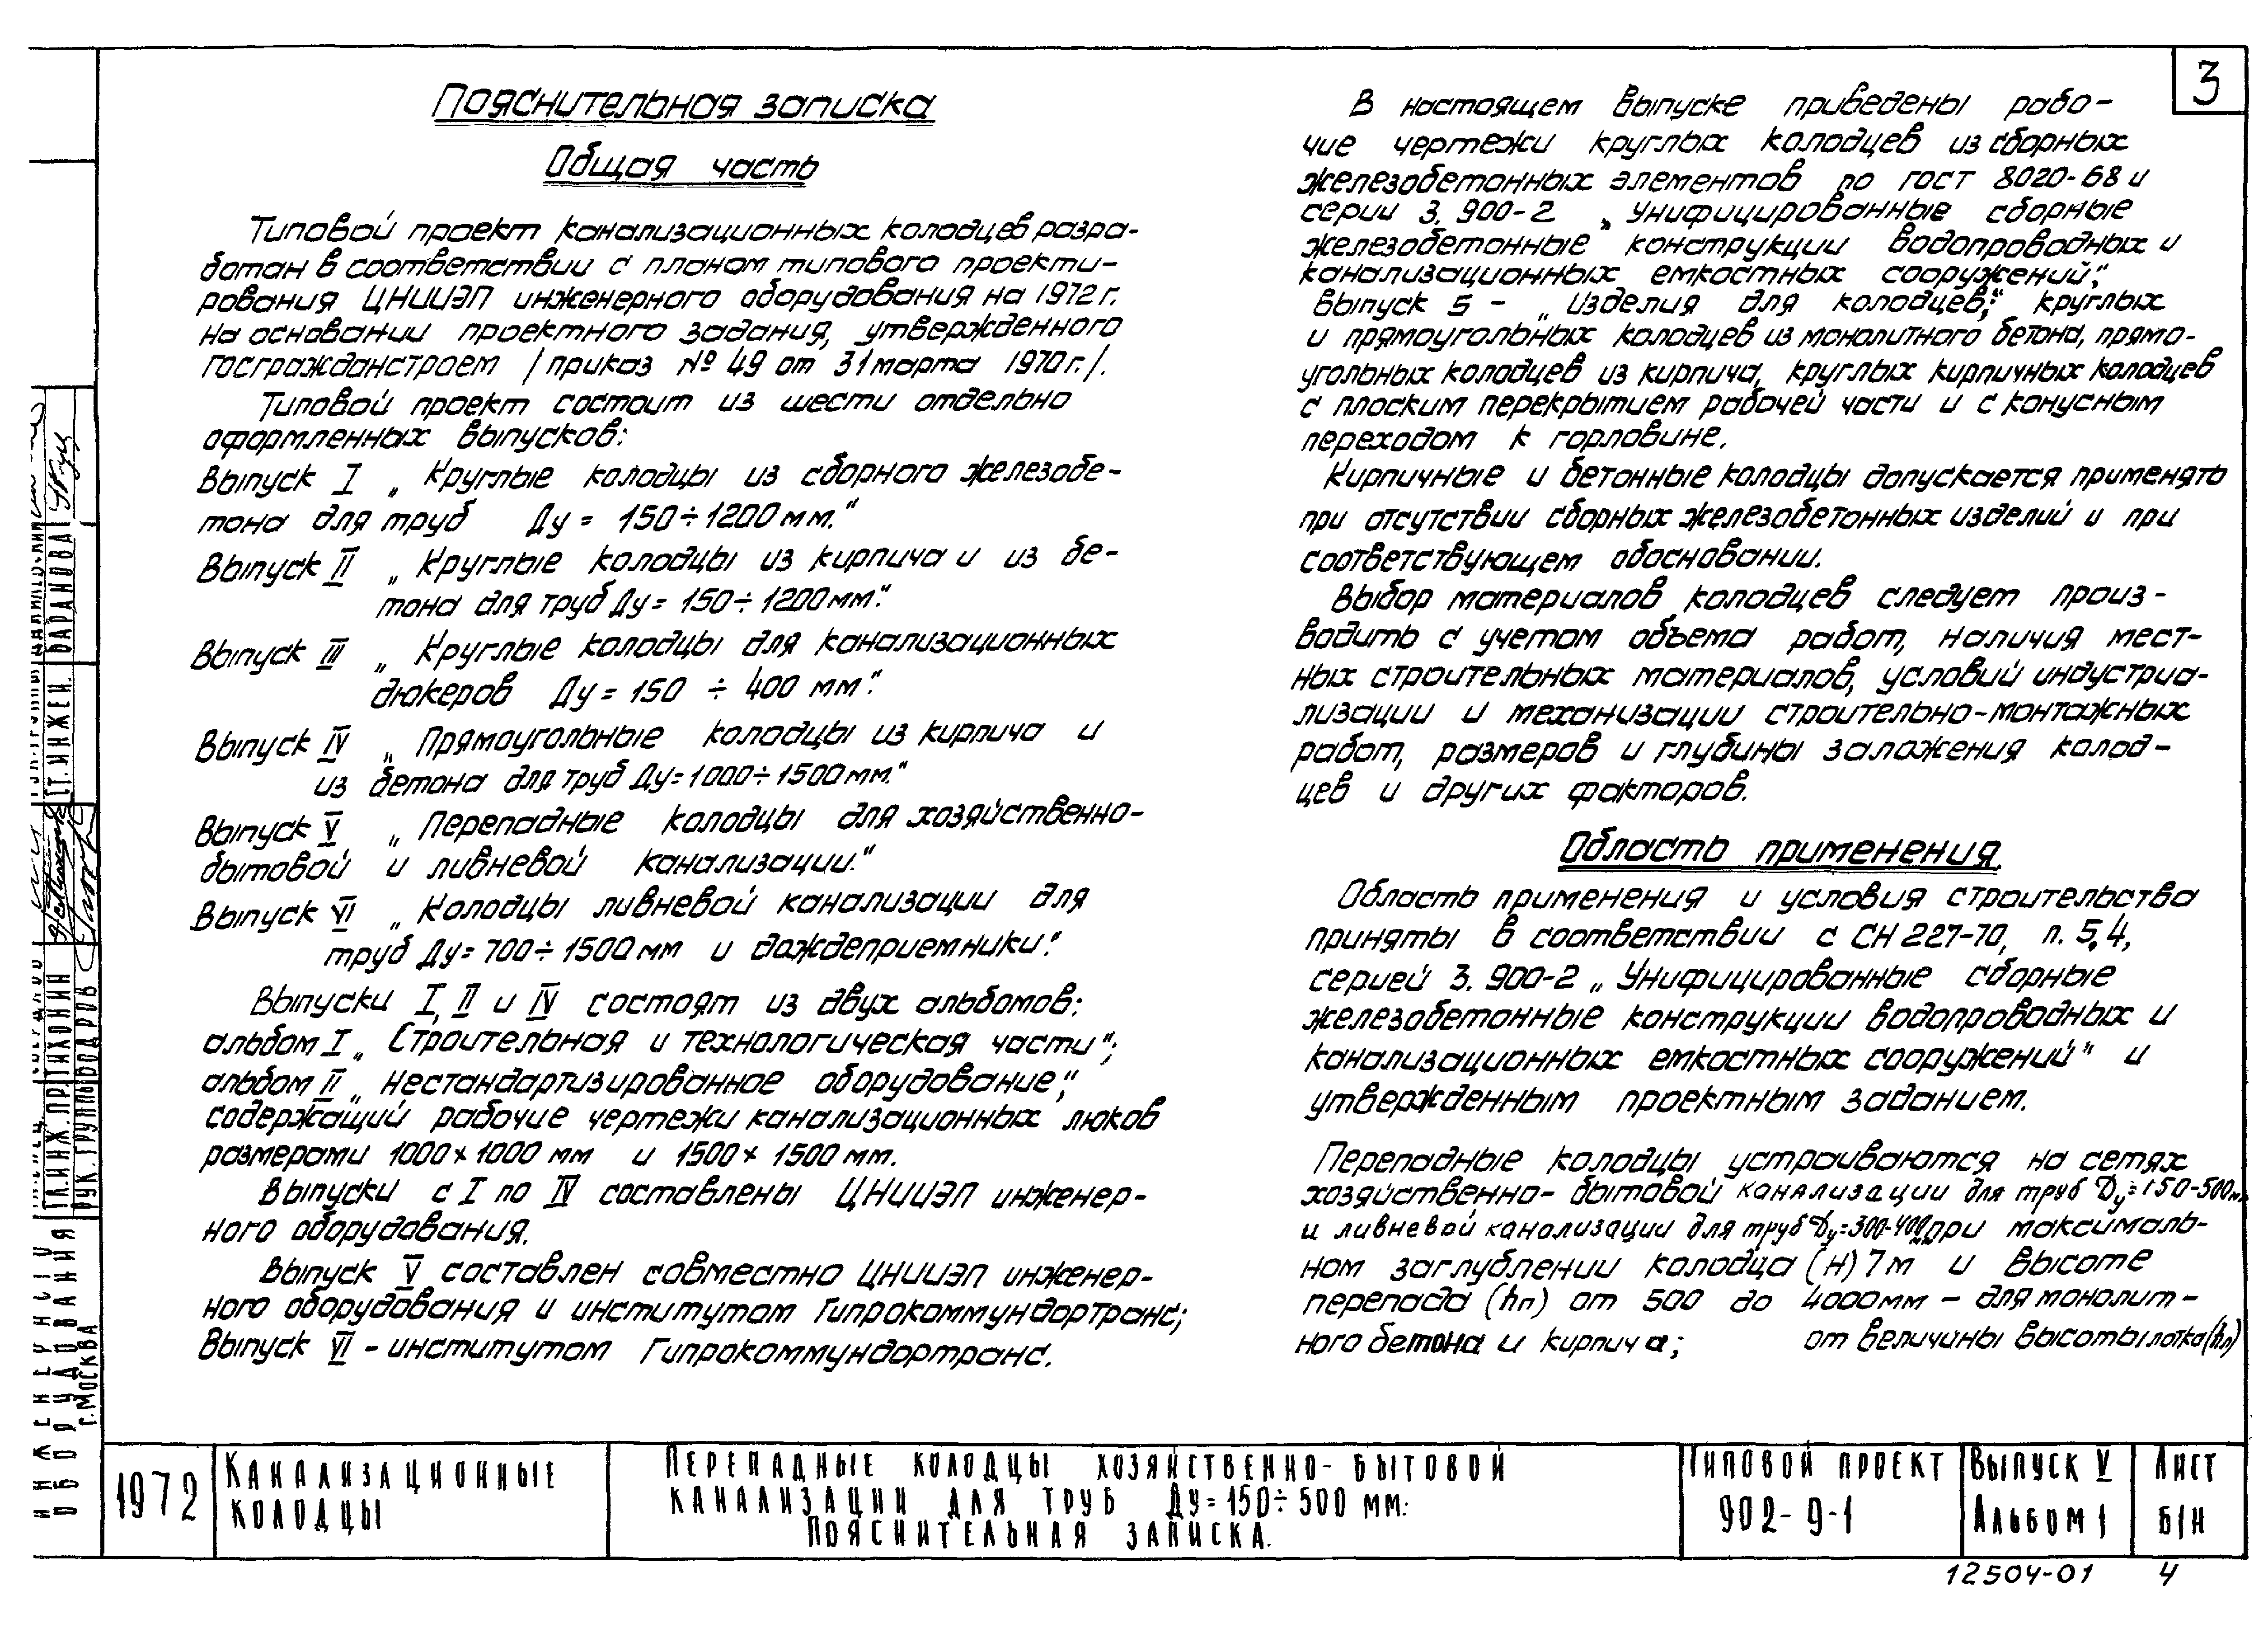 3
Пояснительная записка
Общая часть
Типовой проект канализационных колодцев разра-
ботан в соответствии с планом типового проекти-
рования ЦНИИЭП инженерного оборудования на 1972 г.
на основании проектного задания, утвержденного
Госгражданстроем /приказ № 49 от 31 марта 1970 г./.
Типовой проект состоит из шести отдельно
оформленных выпусков:
Выпуск I „Круглые колодцы из сборного железобе-
тона для труб Ду = 150÷1200 мм."
Выпуск II „Круглые колодцы из кирпича и из бе-
тона для труб Ду = 150÷1200 мм."
Выпуск III „Круглые колодцы для канализационных
дюкеров Ду = 150 ÷ 400 мм."
Выпуск IV „Прямоугольные колодцы из кирпича и
из бетона для труб Ду = 1000÷1500 мм."
Выпуск V „Перепадные колодцы для хозяйственно-
бытовой и ливневой канализации."
Выпуск VI „Колодцы ливневой канализации для
труб Ду = 700÷1500 мм и дождеприемники."
Выпуски I, II и IV состоят из двух альбомов:
альбом I „Строительная и технологическая части";
альбом II „Нестандартизированное оборудование",
содержащий рабочие чертежи канализационных люков
размерами 1000×1000 мм и 1500×1500 мм.
Выпуски с I по IV составлены ЦНИИЭП инженер-
ного оборудования.
Выпуск V составлен совместно ЦНИИЭП инженер-
ного оборудования и институтом Гипрокоммундортранс;
Выпуск VI - институтом Гипрокоммундортранс.
В настоящем выпуске приведены рабо-
чие чертежи круглых колодцев из сборных
железобетонных элементов по ГОСТ 8020-68 и
серии 3.900-2 „Унифицированные сборные
железобетонные конструкции водопроводных и
канализационных емкостных сооружений",
выпуск 5 - „Изделия для колодцев"; круглых
и прямоугольных колодцев из монолитного бетона, прямо-
угольных колодцев из кирпича, круглых кирпичных колодцев
с плоским перекрытием рабочей части и с конусным
переходом к горловине.
Кирпичные и бетонные колодцы допускается применять
при отсутствии сборных железобетонных изделий и при
соответствующем обосновании.
Выбор материалов колодцев следует произ-
водить с учетом объема работ, наличия мест-
ных строительных материалов, условий индустриа-
лизации и механизации строительно-монтажных
работ, размеров и глубины заложения колод-
цев и других факторов.
Область применения.
Область применения и условия строительства
приняты в соответствии с СН 227-70, п. 5.4,
серией 3.900-2 „Унифицированные сборные
железобетонные конструкции водопроводных и
канализационных емкостных сооружений" и
утвержденным проектным заданием.
Перепадные колодцы устраиваются на сетях
хозяйственно-бытовой канализации для труб Dу=150-500мм
и ливневой канализации для труб Dу=300-400мм при максималь-
ном заглублении колодца (Н) 7 м и высоте
перепада (hп) от 500 до 4000 мм - для монолит-
ного бетона и кирпича; от величины высоты лотка (hл)
СТ.ИНЖЕН. БАРАНОВА
ГЛ.ИНЖ.ПР ТИХОНИН
РУК.ГРУППЫ БОДРОВ
ОБОРУДОВАНИЯ
г.Москва
1972
Канализационные
колодцы
Перепадные колодцы хозяйственно-бытовой
канализации для труб Ду=150÷500 мм.
Пояснительная записка.
Типовой проект
902-9-1
Выпуск V
Альбом 1
Лист
Б/Н
12504-01 4